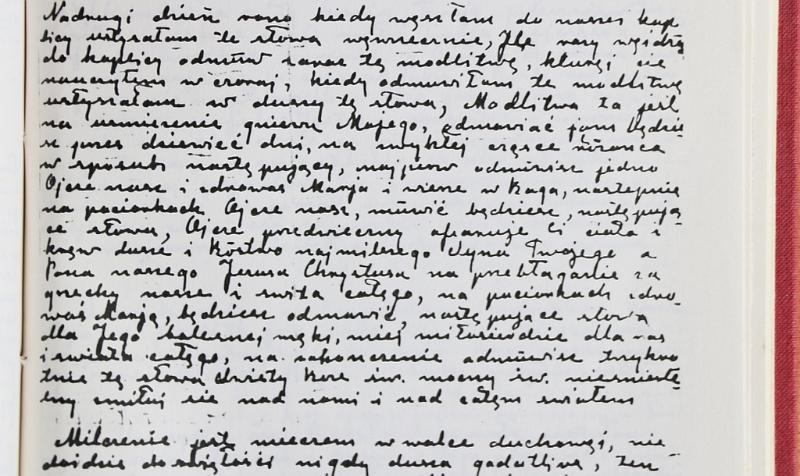 Nadrugi dzień rano kiedy weszłam do naszej kap
licy usłyszałam te słowa wewnecznie, Ile razy wejdziesz
do kaplicy odmów zaraz tę modlitwę, której cię
nauczyłem wczoraj, kiedy odmówiłam te modlitwę
usłyszałam w duszy tę słowa, Modlitwa ta jest
na uśmierzenie gniewu Mojego, odmawiać ją będzie
sz przez dziewięć dni, na zwykłej cząsce różańca
w sposób następujący, najpierw odmówisz jedno
Ojcze nasz i zdrowaś Maryja i wierze w Boga, następnie
na paciorkach Ojcze nasz, mówić będziesz, następują
ce słowa, Ojcze przedwieczny ofiaruję Ci ciało i
krew dusze i Bóstwo najmilszego Syna Twojego a
Pana naszego Jezusa Chrystusa na przebłaganie za
grzechy nasze i świta całego, na paciorkach zdro-
waś Maryja, będziesz odmawiać, następujące słowa
dla Jego bolesnej męki, miej miłosierdzie dla nas
i świata całego, na zakończenie odmówisz trzykro
tnie te słowa Święty Boże św. mocny św. nieśmierte
lny zmiłuj się nad nami i nad całym światem
Milczenie jest mieczem w walce duchowej, nie-
dojdzie do świętości nigdy dusza gadatliwa, ten